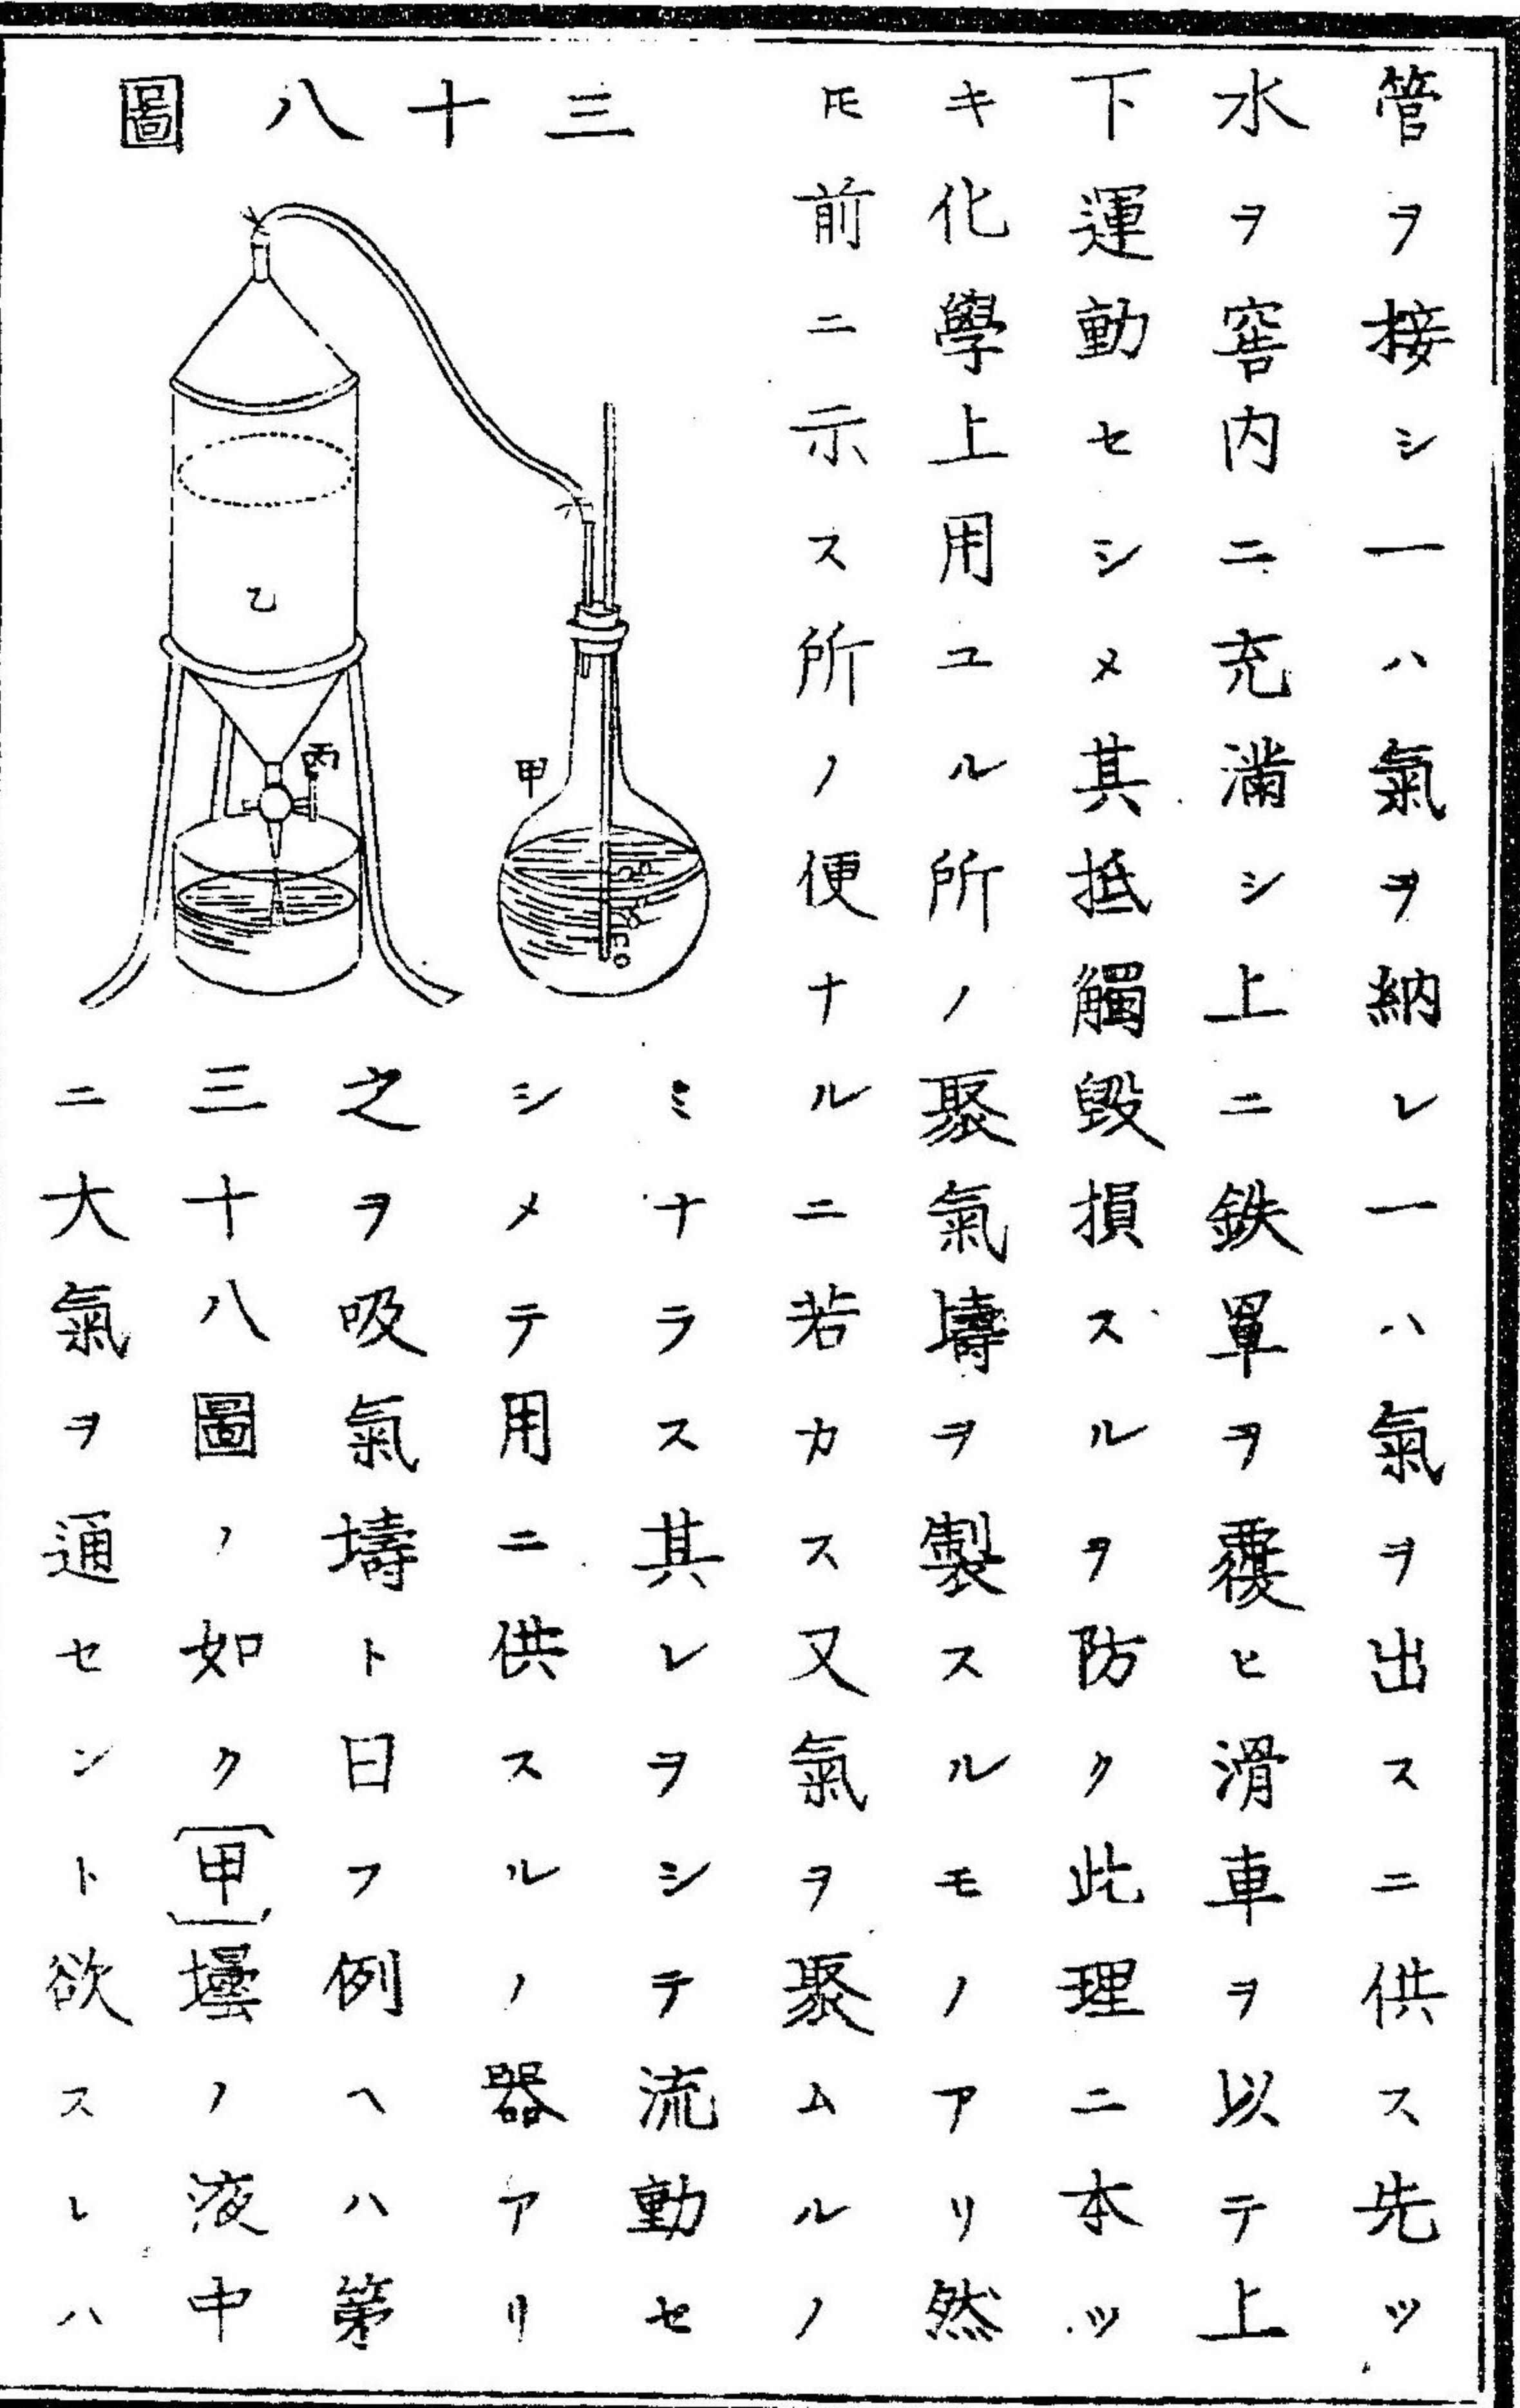 管ヲ接シ一ハ氣ヲ納レ一ハ氣ヲ出スニ供ス先ツ
水ヲ窖内ニ充滿シ上ニ鉄罩ヲ覆ヒ滑車ヲ以テ上
下運動セシメ其抵觸毀損スルヲ防ク此理ニ本ツ
キ化學上用ユル所ノ聚氣壔ヲ製スルモノアリ然
𪜈前ニ示ス所ノ便ナルニ若カス又氣ヲ聚ムルノ
ミナラス其レヲシテ流動セ
シメテ用ニ供スルノ器アリ
之ヲ吸氣壔ト曰フ例ヘハ第
三十八圖ノ如ク[甲]壜ノ液中
ニ大氣ヲ通セント欲スレハ
三十八圖
甲
乙
丙